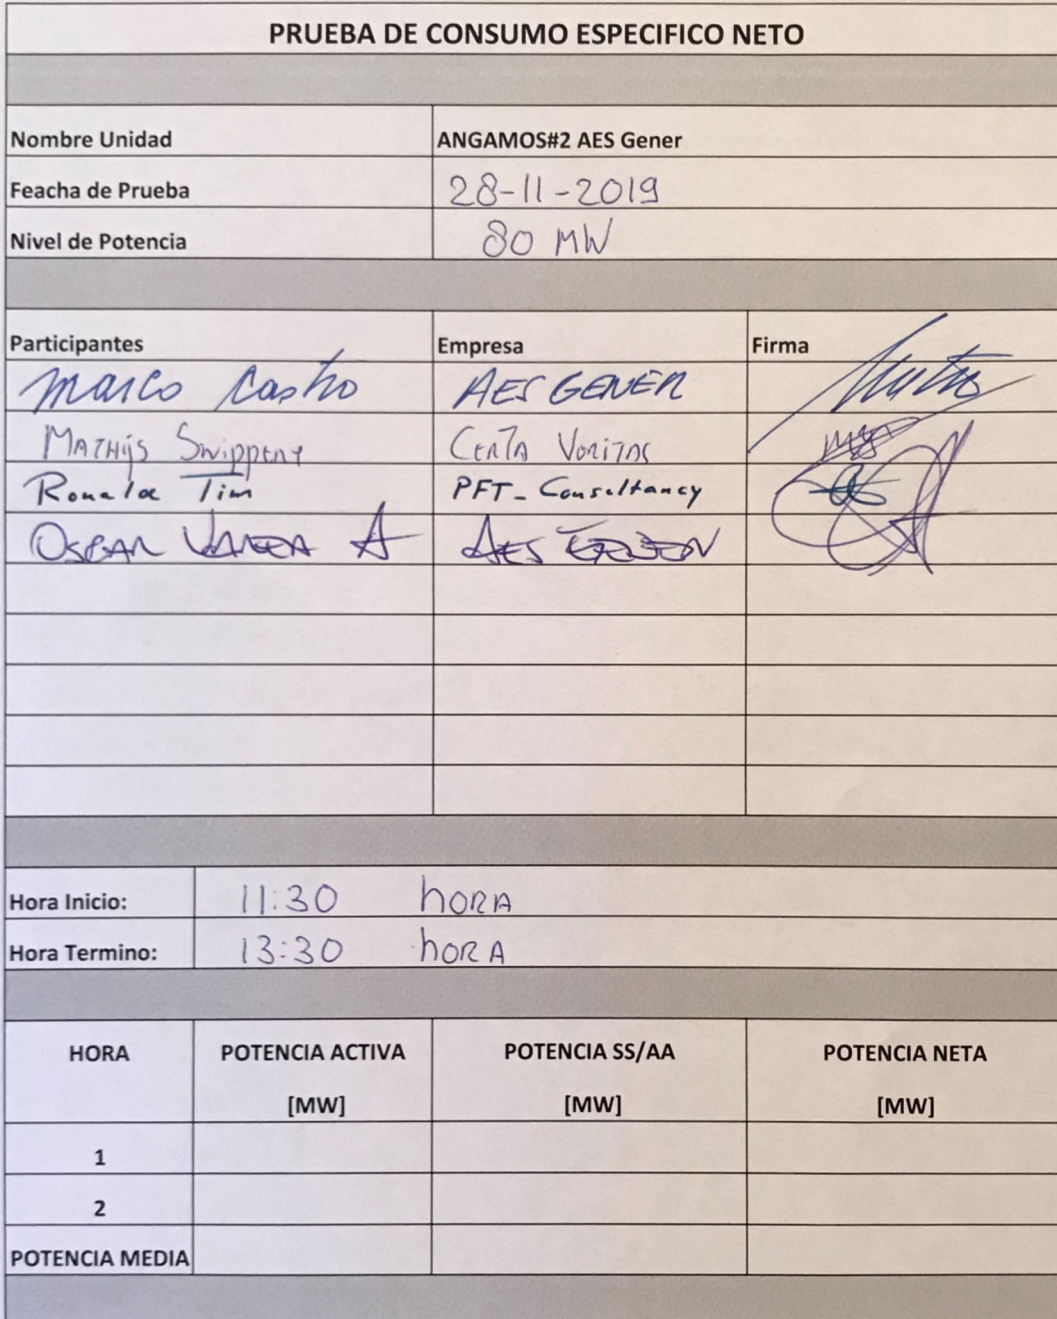 PRUEBA DE CONSUMO ESPECIFICO NETO
Nombre Unidad ANGAMOS#2 AES Gener
Feacha de Prueba 28-11-2019
Nivel de Potencia 80 MW
Participantes Empresa Firma
Marco Castro AES GENER
MATHIJS CERTA VERITAS
Ronald Tim PFT-Consultancy
OSCAR A AES GENER
Hora Inicio: 11:30 hORA
Hora Termino: 13:30 hORA
HORA POTENCIA ACTIVA POTENCIA SS/AA POTENCIA NETA
[MW] [MW] [MW]
1
2
POTENCIA MEDIA